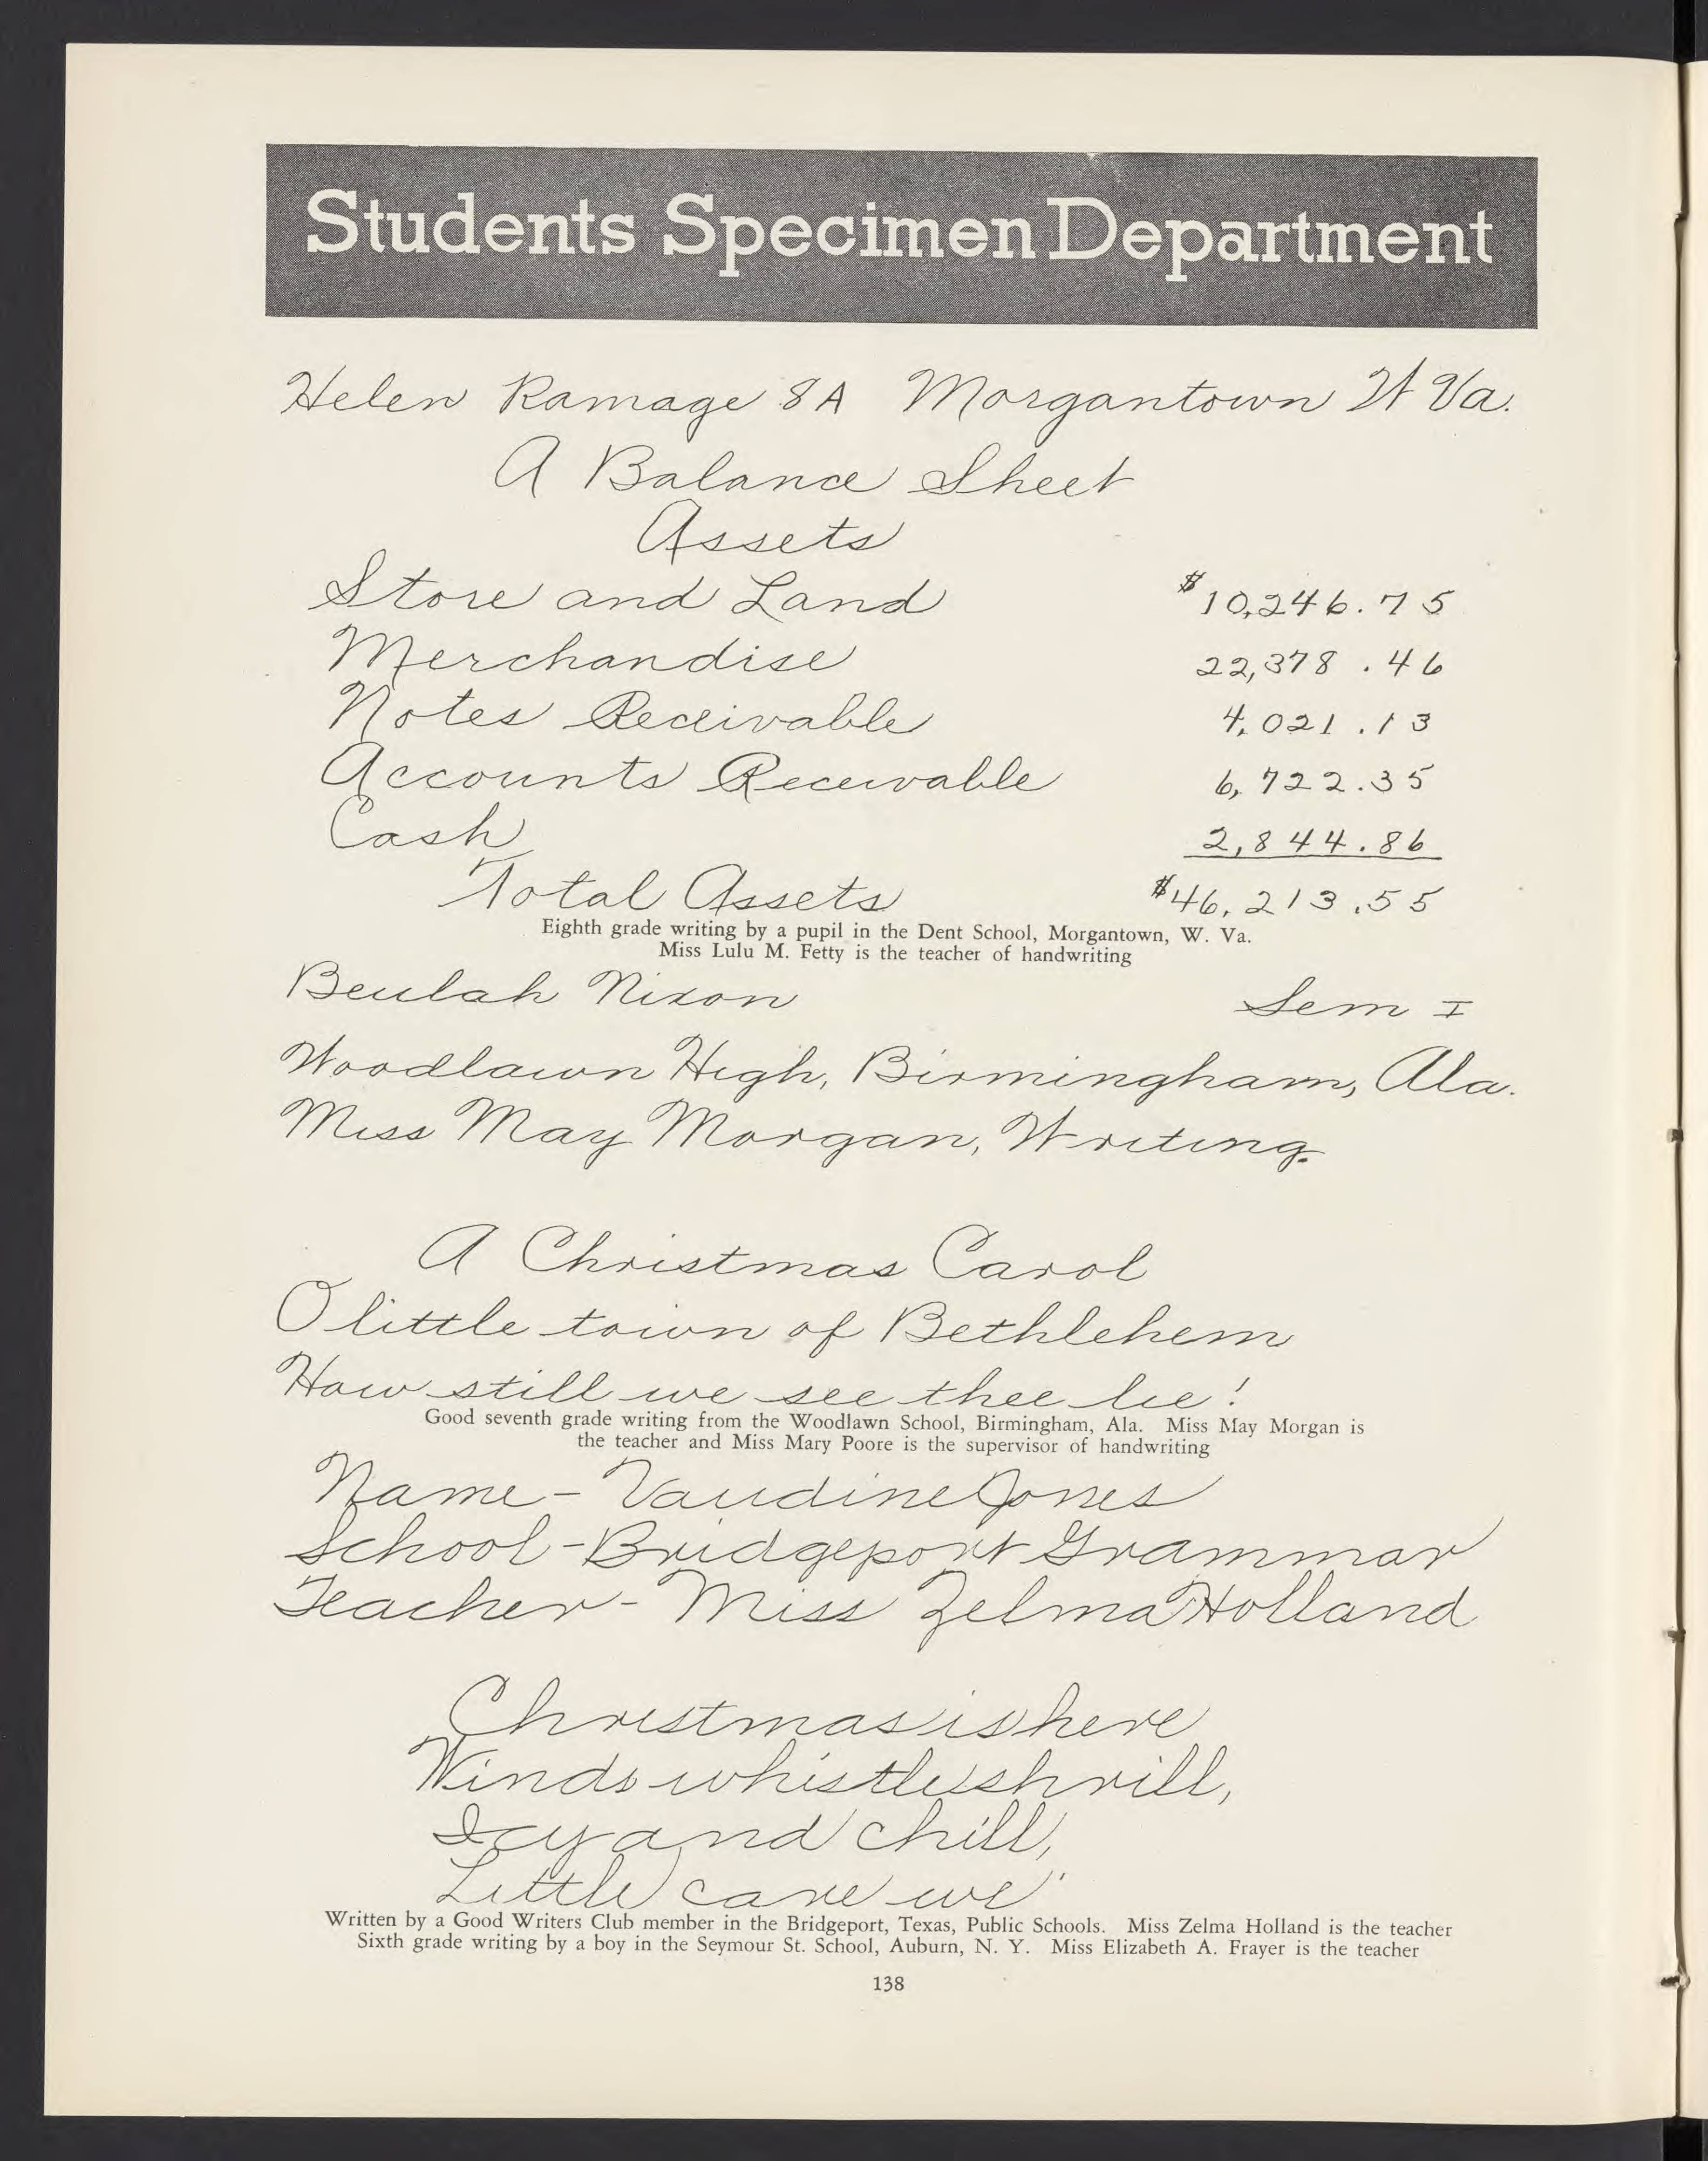 Students Specimen Department
Helen Ramage 8A Morgantown W Va.
A Balance Sheet
Assets
Store and Land $10,246.75
Merchandise 22,378.46
Notes Receivable 4,021.13
Accounts Receivable 6,722.35
Cash 2,844.86
Total Assets $46,213.55
Eighth grade writing by a pupil in the Dent School, Morgantown, W. Va.
Miss Lulu M. Fetty is the teacher of handwriting
Beulah Nixon Sem I
Woodlawn High, Birmingham, Ala.
Miss May Morgan, Writing.
A Christmas Carol
O little town of Bethlehem
How still we see thee lie!
Good seventh grade writing from the Woodlawn School, Birmingham, Ala. Miss May Morgan is
the teacher and Miss Mary Poore is the supervisor of handwriting
Name - Vaudine Jones
School - Bridgeport Grammar
Teacher - Miss Zelma Holland
Christmas is here
Winds whistle shrill,
Icy and chill,
Little care we
Written by a Good Writers Club member in the Bridgeport, Texas, Public Schools. Miss Zelma Holland is the teacher
Sixth grade writing by a boy in the Seymour St. School, Auburn, N. Y. Miss Elizabeth A. Frayer is the teacher
138